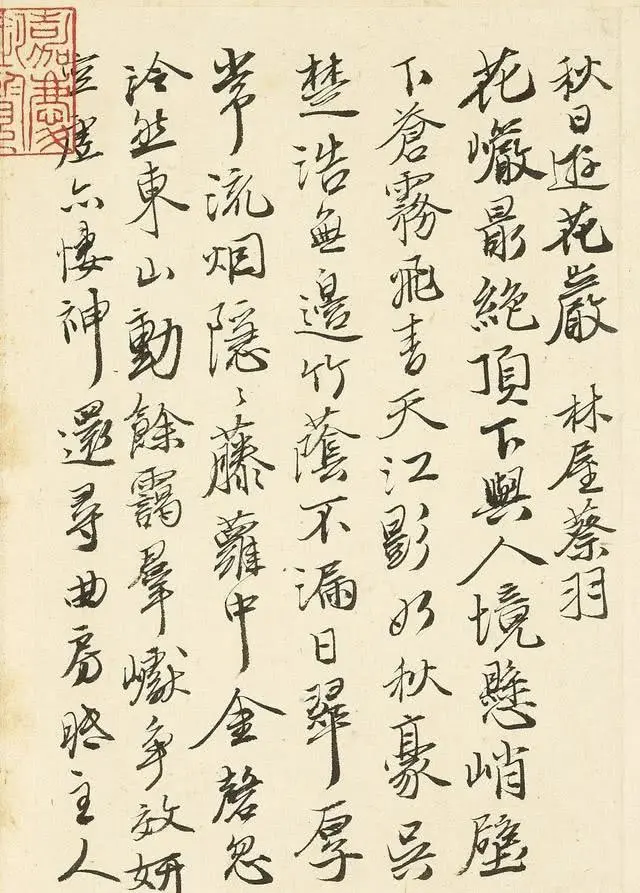 秋日遊花巖 林屋蔡羽
花巖最絕頂下與人境懸峭壁
下蒼霧飛青天江影如秋豪吳
楚浩無邊竹蔭不漏日翠厚
常流烟隱〻藤蘿中金磬忽
泠然東山動餘靄羣巘爭效妍
亦悽神還尋曲房眠主人
嘉慶